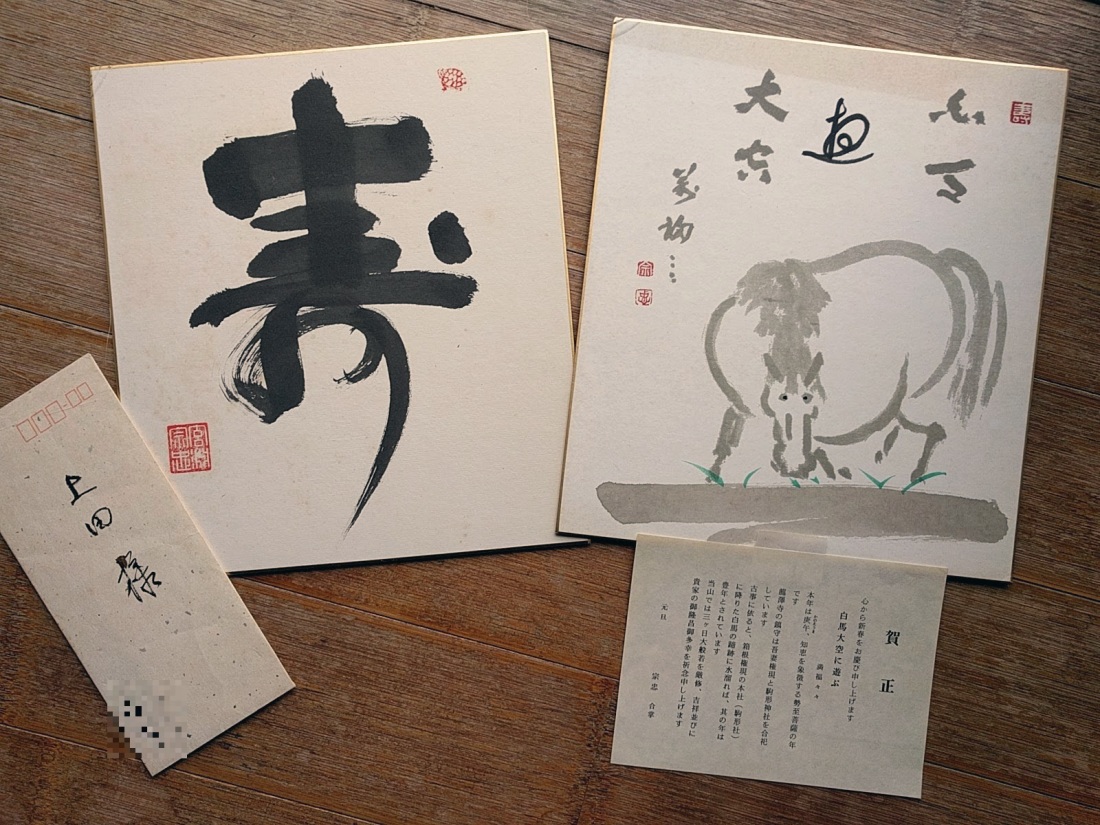 寿
白馬
遊
大空
宗
忠
上田 様
賀正
心から新春をお慶び申し上げます
白馬大空に遊ぶ
満福々々
本年は庚午、知恵を象徴する勢至菩薩の年
です
龍澤寺の鎮守は吾妻権現と駒形神社を合祀
しています
古事に依ると、箱根権現の本社(駒形社)
に降りた白馬の蹄跡に水溜れば、其の年は
豊年とされています
当山では三ヶ日大般若を厳修、吉祥並びに
貴家の御隆昌御多幸を祈念申し上げます
元旦
宗忠 合掌